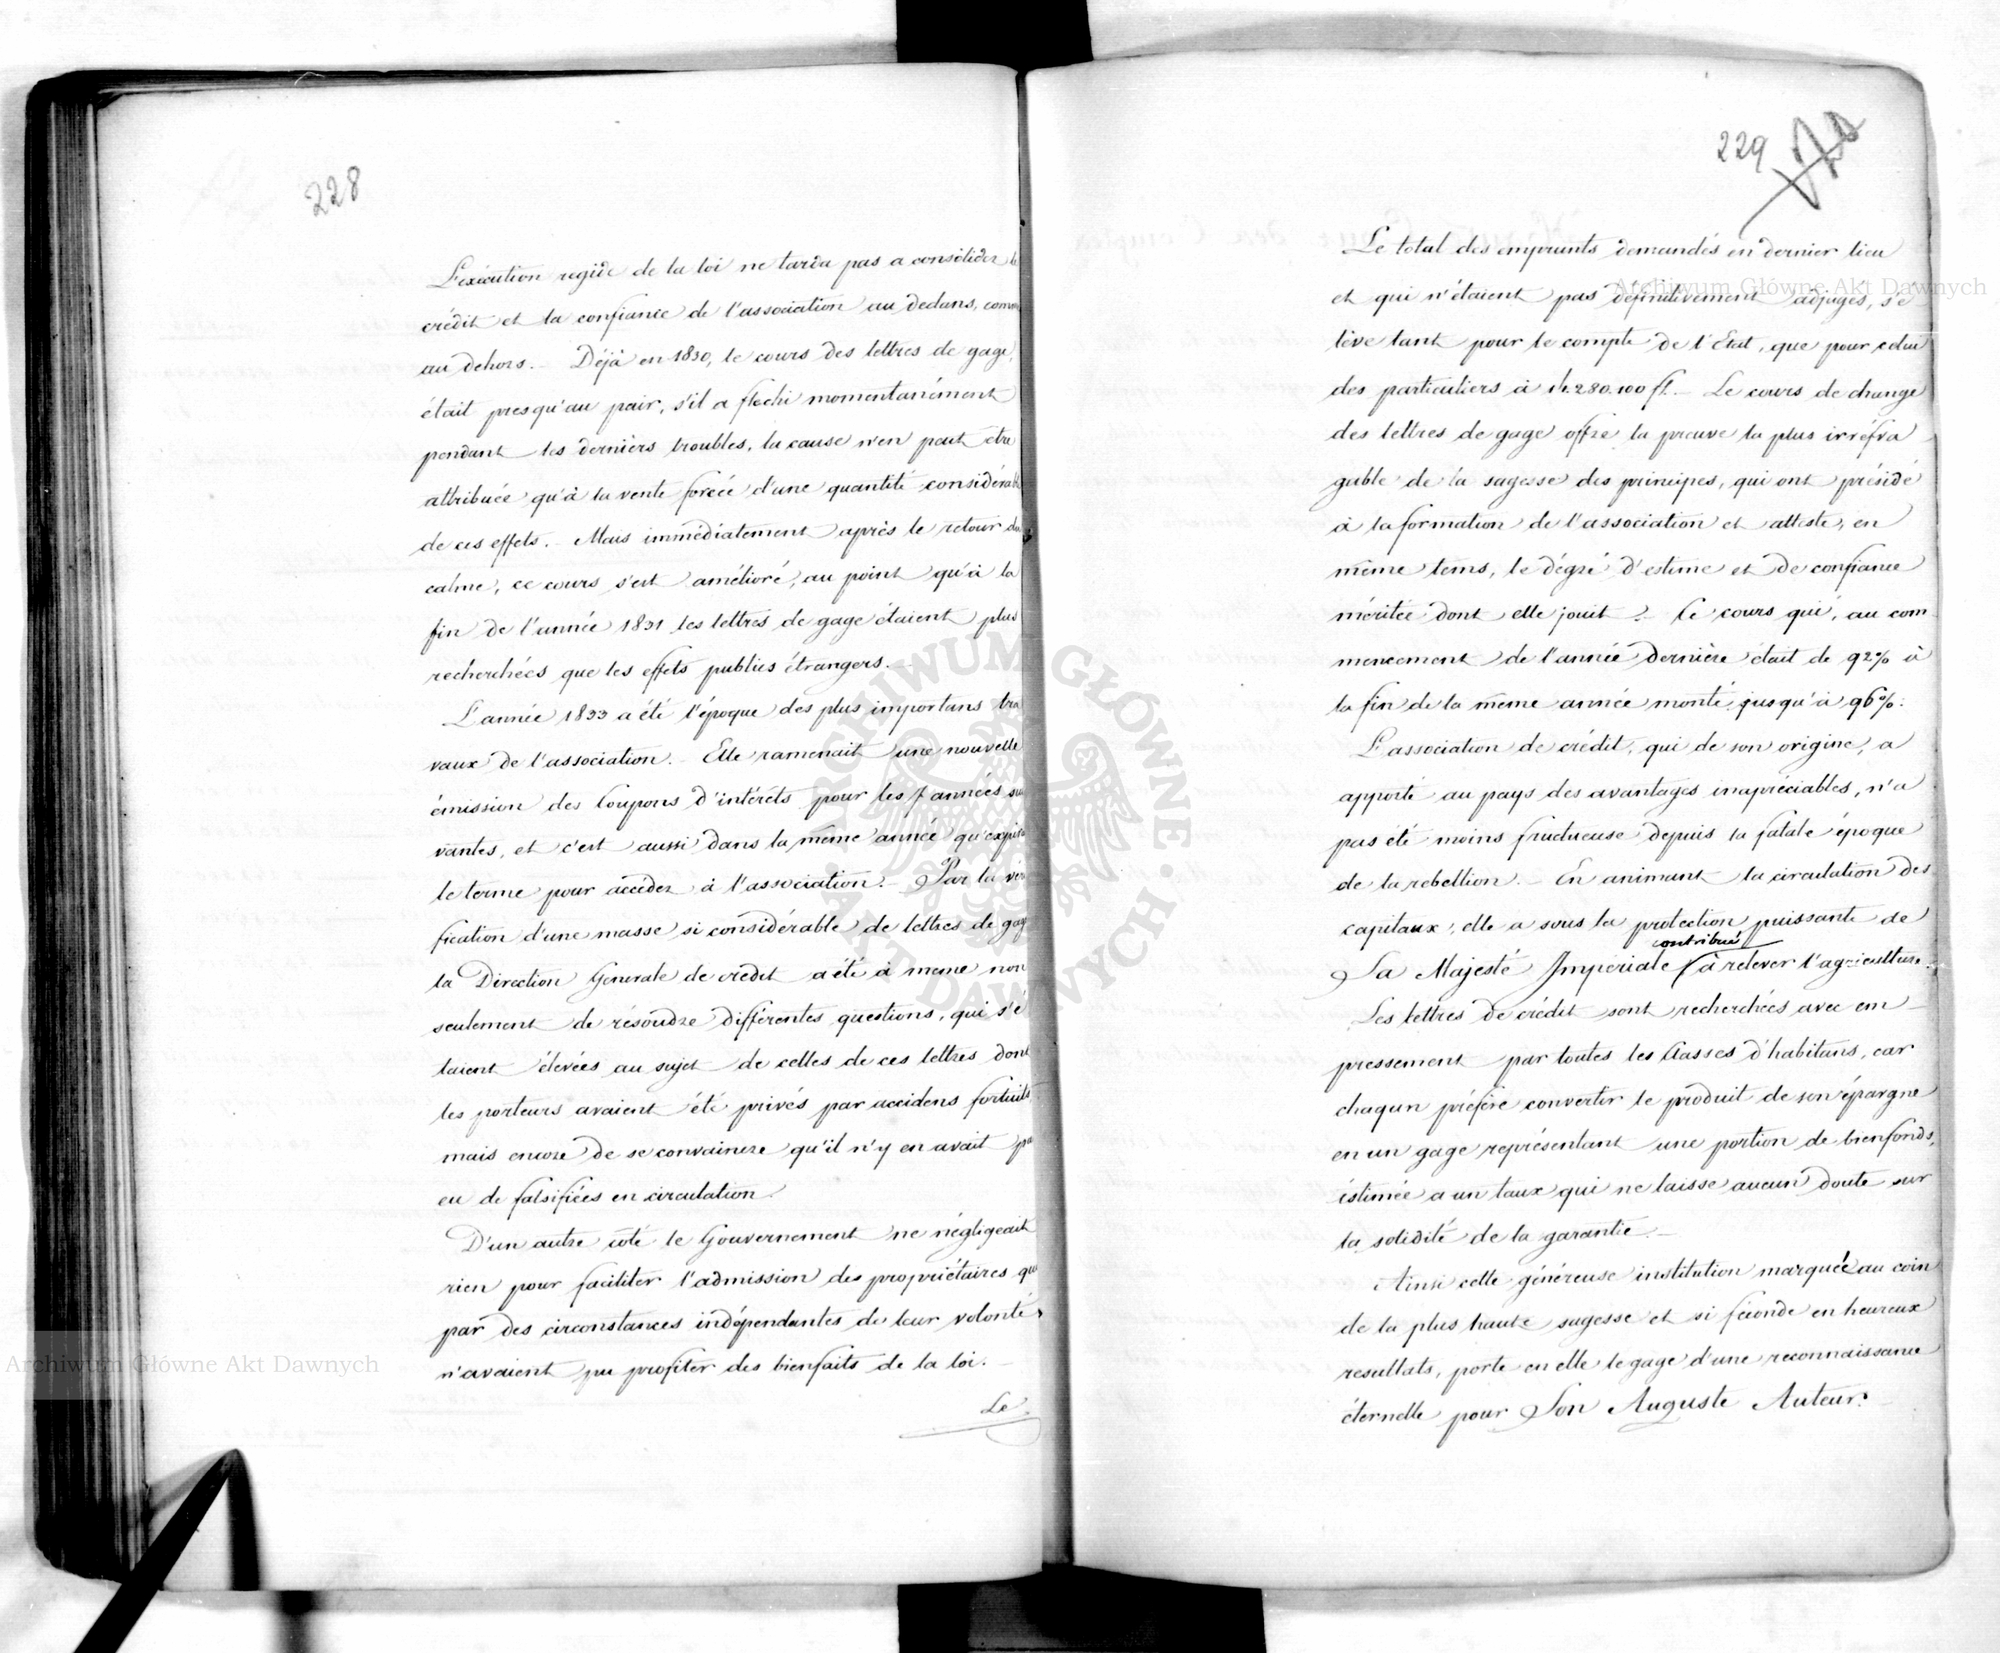 228
L'exécution regide de la loi ne tarda pas a consolider le
crédit et la confiance de l'association au dedans, comme
au dehors. – Déjà en 1830, le cours des lettres de gage,
était presqu'au pair, s'il a flechi momentanément
pendant les derniers troubles, la cause n'en peut etre
attribuée qu'à la vente forcée d'une quantité considérable
de ces effets. – Mais immédiatement après le retour du
calme, ce cours s'est amélioré, au point qu'à la
fin de l'année 1831 les lettres de gage étaient plus
recherchées que les effets publics étrangers. –
L'année 1833 a été l'époque des plus importans tra
vaux de l'association. – Elle ramenait une nouvelle
émission des Coupons d'intérets pour les 7 années sui
vantes, et c'est aussi dans la même année qu'expira
le terme pour accéder à l'association. – Par la véri
fication d'une masse si considérable de lettres de gage
la Direction Generale de crédit a été à meme non
seulement de résoudre différentes questions, qui s'é
taient élevées au sujet de celles de ces lettres dont
les porteurs avaient été privés par accidens fortuits
mais encore de se convaincre qu'il n'y en avait pas
eu de falsifiées en circulation.
D'un autre coté le Gouvernement ne négligeait
rien pour faciliter l'admission des propriétaires qui
par des circonstances indépendantes de leur volonté
n'avaient pu profiter des bienfaits de la loi. –
Le
229
Le total des emprunts demandés en dernier lieu
et qui n'étaient pas definitivement adjugés, s'é
lève tant pour le compte de l'Etat, que pour celui
des particuliers à 280.100 fl. – Le cours de change
des lettres de gage offre la preuve la plus irréfra
gable de la sagesse des principes, qui ont présidé
à la formation de l'association et atteste, en
même tems, le dégré d'estime et de confiance
méritée dont elle jouit. – Ce cours qui, au com
mencement de l'année dernière était de 92% à
la fin de la meme année monté jusqu'à 96%.
L'association de crédit, qui de son origine, a
apporté au pays des avantages inapréciables, n'a
pas été moins fructueuse depuis la fatale époque
de la rebellion. – En animant la circulation des
capitaux, elle a sous la protection puissante de
contribué
Sa Majesté Imperiale à relever l'agriculture.
Les lettres de crédit sont recherchées avec em
pressement par toutes les Classes d'habitans, car
chaqun préfére convertir le produit de son épargne
en un gage représentant une portion de bienfonds,
éstimée a un taux qui ne laisse aucun doute sur
la solidité de la garantie. –
Ainsi cette généreuse institution marquée au coin
de la plus haute sagesse et si féconde en heureux
resultats, porte en elle le gage d'une reconnaissance
éternelle pour Son Auguste Auteur.
Archiwum Główne Akt Dawnych
Archiwum Główne Akt Dawnych
ARCHIWUM GŁÓWNE · AKT DAWNYCH ·